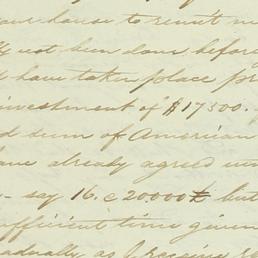 your house to remit
not been done before
have taken place
investment of $17500.
sum of American
have already agreed
- say 16.c 20000 but
sufficient time given
gradually as I receive